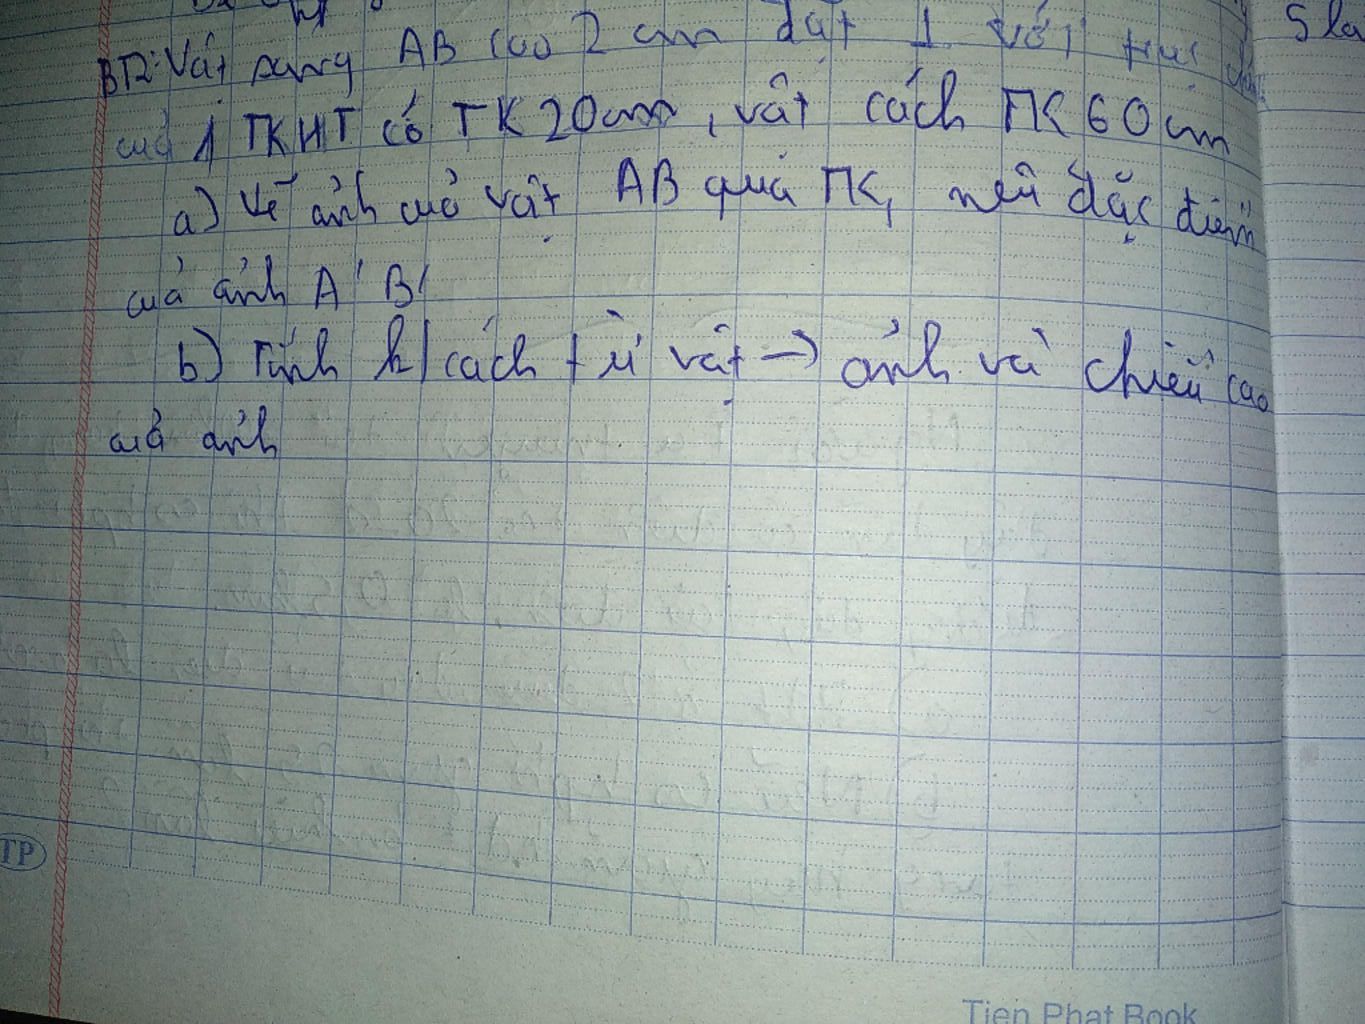 BT2: Vật sáng AB cao 2 cm đặt ⊥ với trục
5 la
của 1 TKHT có TK 20cm, vật cách TK 60cm
a) Vẽ ảnh của vật AB qua TK, nêu đặc điểm
của ảnh A'B'
b) Tính k/cách từ vật → ảnh và chiều cao
của ảnh
TP
Tien Phat Book